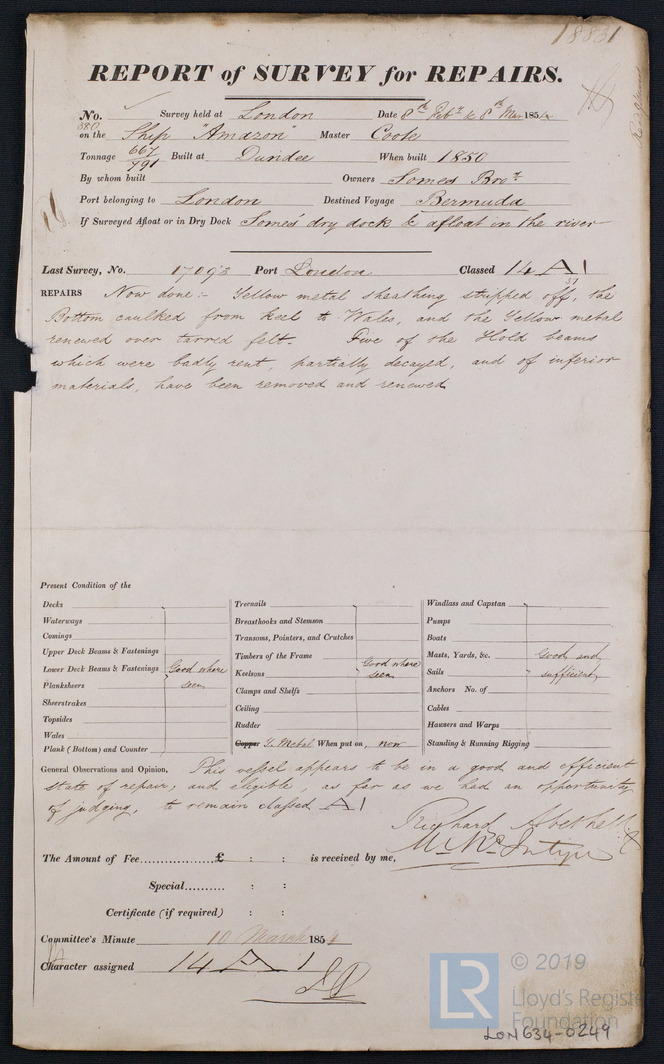 18831
REPORT of SURVEY for REPAIRS.
No. Survey held at London Date 8th Feby & 8th Mar 1854
580
on the Ship "Amazon" Master Cook
Tonnage 667/791 Built at Dundee When built 1850
By whom built Owners Somes Bros
Port belonging to London Destined Voyage Bermuda
If Surveyed Afloat or in Dry Dock Somes' dry dock & afloat in the river
Last Survey, No. 17093 Port London Classed 14 A 1
REPAIRS Now done:- Yellow metal sheathing stripped off, the
Bottom caulked from keel to Wales, and the Yellow metal
renewed over tarred felt. Five of the Hold beams
which were badly rent, partially decayed, and of inferior
materials, have been removed and renewed
Present Condition of the
Decks
Waterways
Comings
Upper Deck Beams & Fastenings
Lower Deck Beams & Fastenings Good where
Planksheers seen
Sheerstrakes
Topsides
Wales
Plank (Bottom) and Counter
Treenails
Breasthooks and Stemson
Transoms, Pointers, and Crutches
Timbers of the Frame Good where
Keelsons seen
Clamps and Shelfs
Ceiling
Rudder
Copper Y. Metal When put on, now
Windlass and Capstan
Pumps
Boats
Masts, Yards, &c. Good and
Sails sufficient
Anchors No. of
Cables
Hawsers and Warps
Standing & Running Rigging
General Observations and Opinion, This vessel appears to be in a good and efficient
state of repair, and eligible, as far as we had an opportunity
of judging, to remain classed A 1
Richard Abethell
M McIntyre
The Amount of Fee..............£ : : is received by me,
Special.......... : :
Certificate (if required) : :
Committee's Minute 10 March 1854
Character assigned 14 A 1
LR © 2019
Lloyd's Register
Foundation
LON634-0249